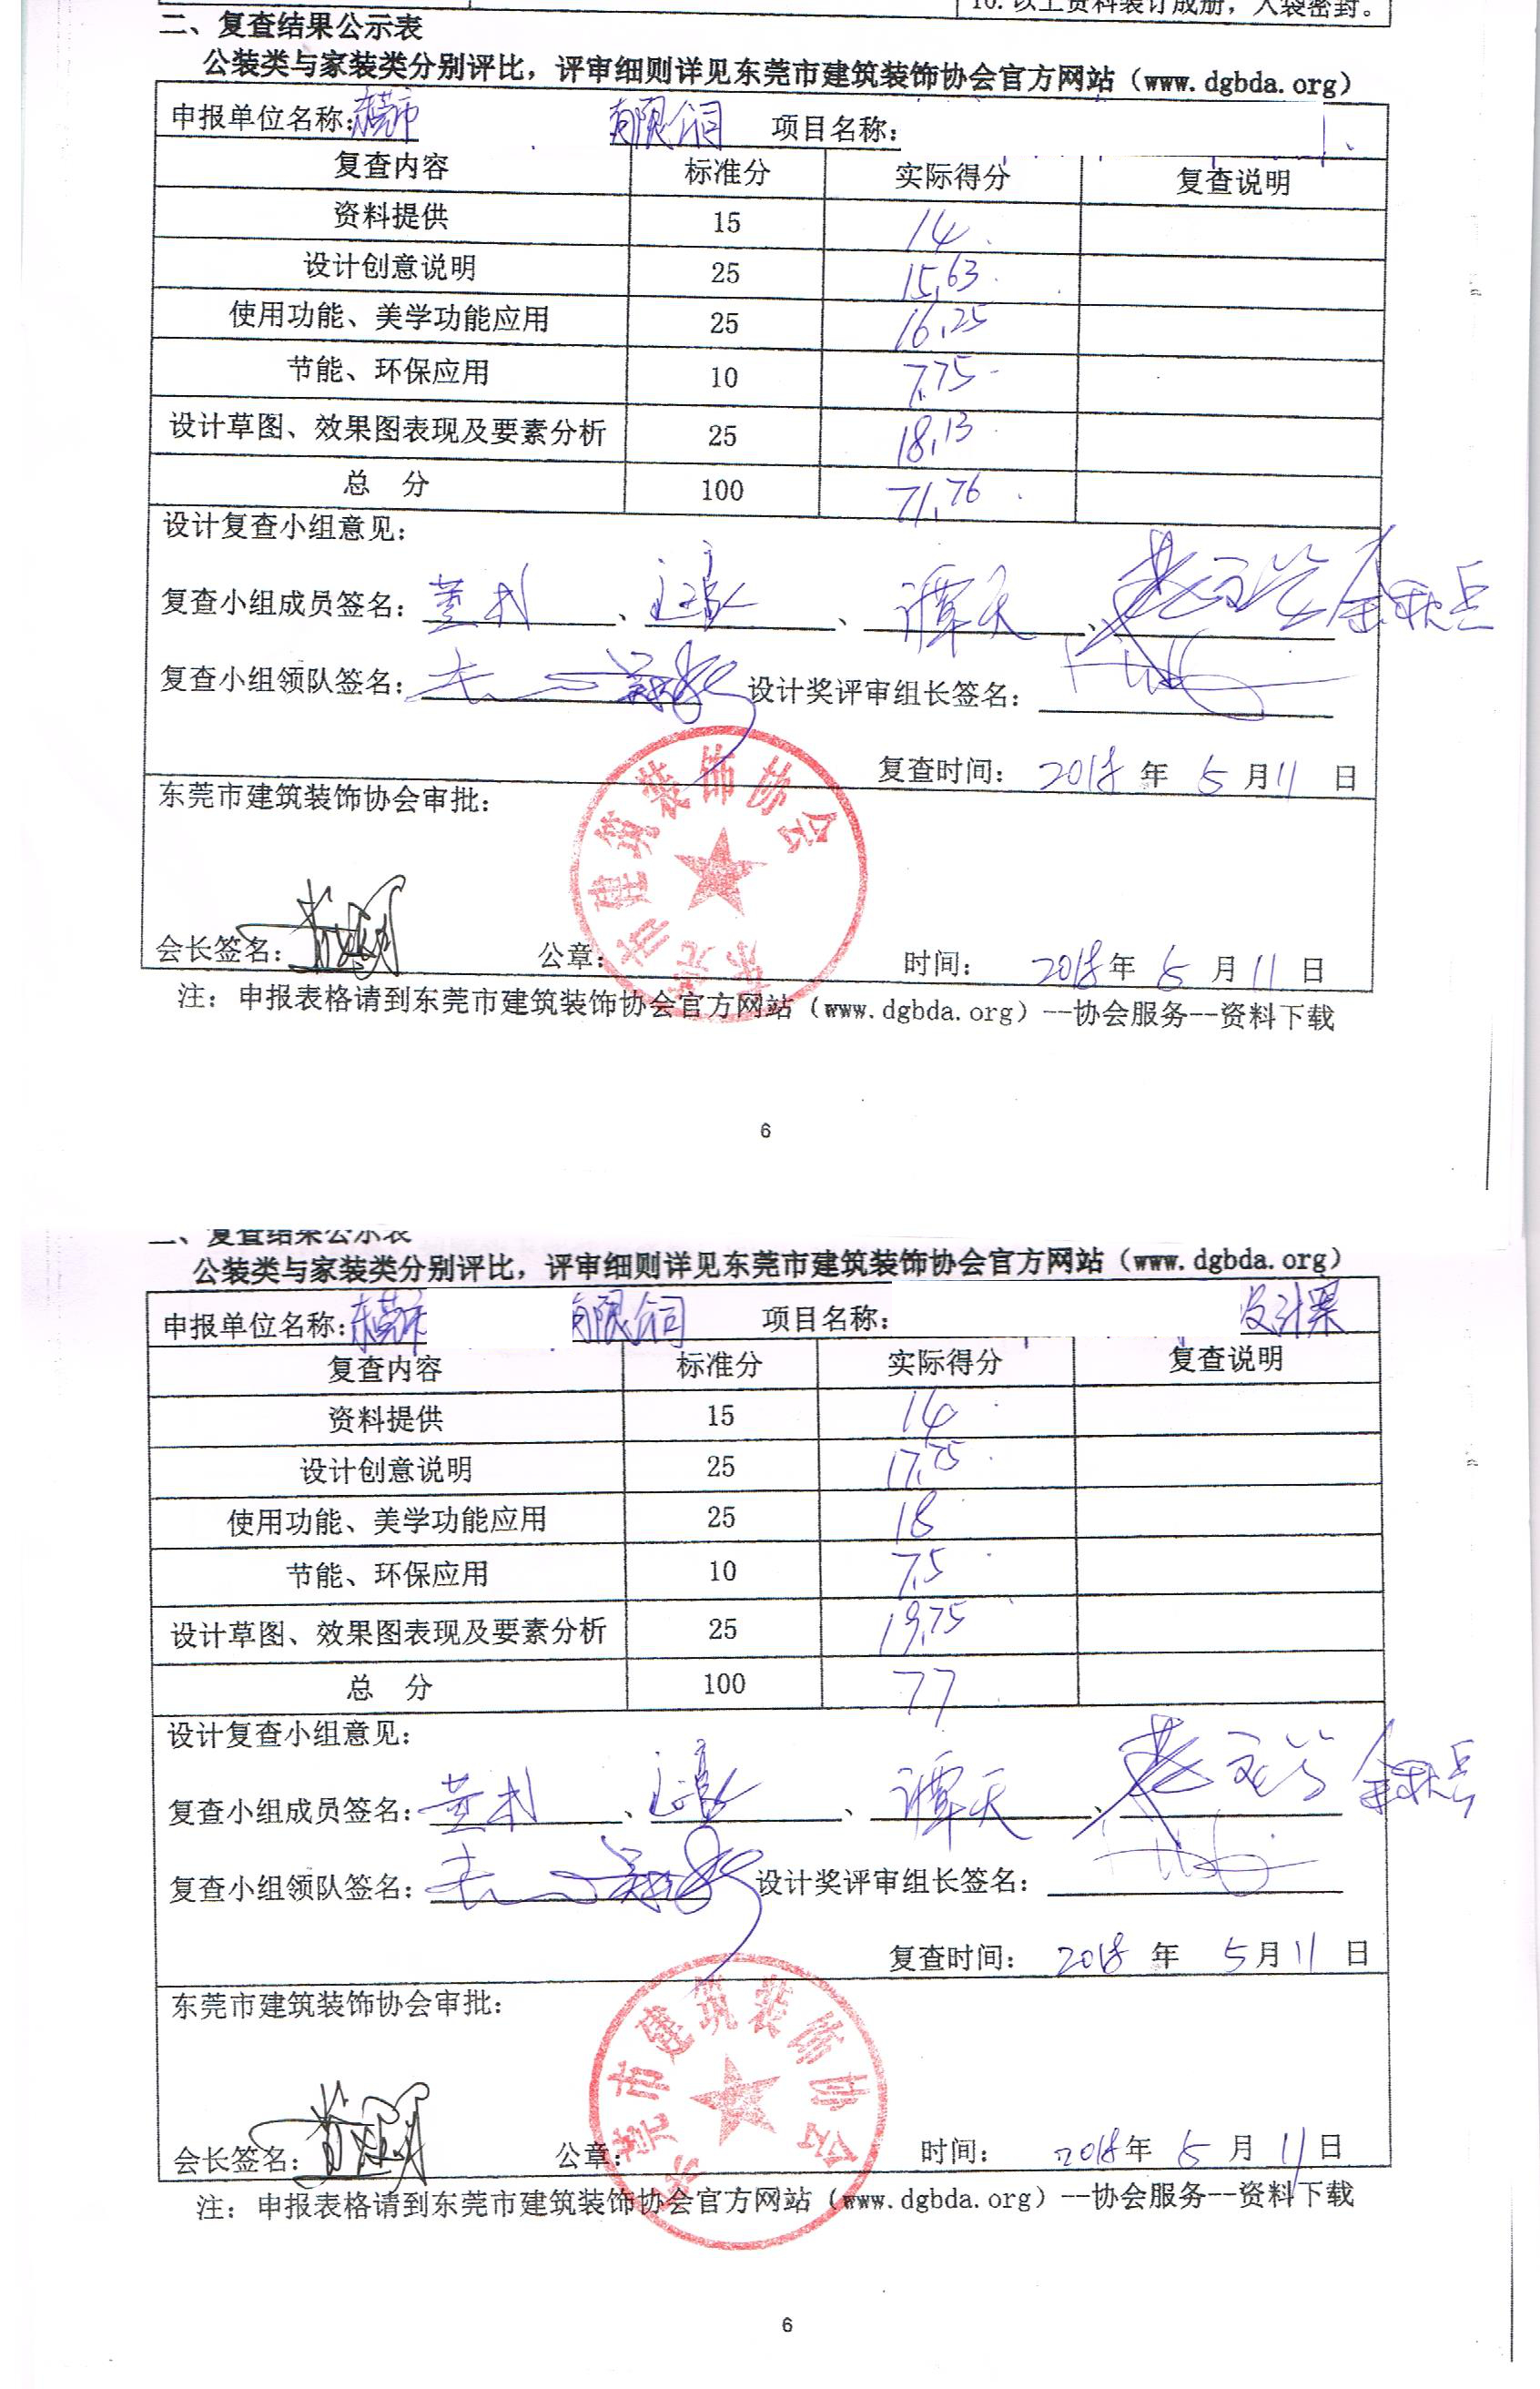 10. 以上资料装订成册，入袋密封。
二、复查结果公示表
公装类与家装类分别评比，评审细则详见东莞市建筑装饰协会官方网站（www.dgbda.org）
申报单位名称：东莞市 有限公司 项目名称：
复查内容 标准分 实际得分 复查说明
资料提供 15 14
设计创意说明 25 15.63
使用功能、美学功能应用 25 16.25
节能、环保应用 10 7.75
设计草图、效果图表现及要素分析 25 18.13
总 分 100 71.76
设计复查小组意见：
复查小组成员签名： 、 、谭天、
复查小组领队签名： 设计奖评审组长签名：
复查时间： 2018 年 5 月 11 日
东莞市建筑装饰协会审批：
东莞市建筑装饰协会
会长签名： 公章： 时间： 2018 年 5 月 11 日
注：申报表格请到东莞市建筑装饰协会官方网站（www.dgbda.org）--协会服务--资料下载
6
二、复查结果公示表
公装类与家装类分别评比，评审细则详见东莞市建筑装饰协会官方网站（www.dgbda.org）
申报单位名称：东莞市 有限公司 项目名称：
复查内容 标准分 实际得分 复查说明
资料提供 15 14
设计创意说明 25 17.75
使用功能、美学功能应用 25 18
节能、环保应用 10 7.5
设计草图、效果图表现及要素分析 25 19.75
总 分 100 77
设计复查小组意见：
复查小组成员签名： 、 、谭天、
复查小组领队签名： 设计奖评审组长签名：
复查时间： 2018 年 5 月 11 日
东莞市建筑装饰协会审批：
东莞市建筑装饰协会
会长签名： 公章： 时间： 2018 年 5 月 11 日
注：申报表格请到东莞市建筑装饰协会官方网站（www.dgbda.org）--协会服务--资料下载
6